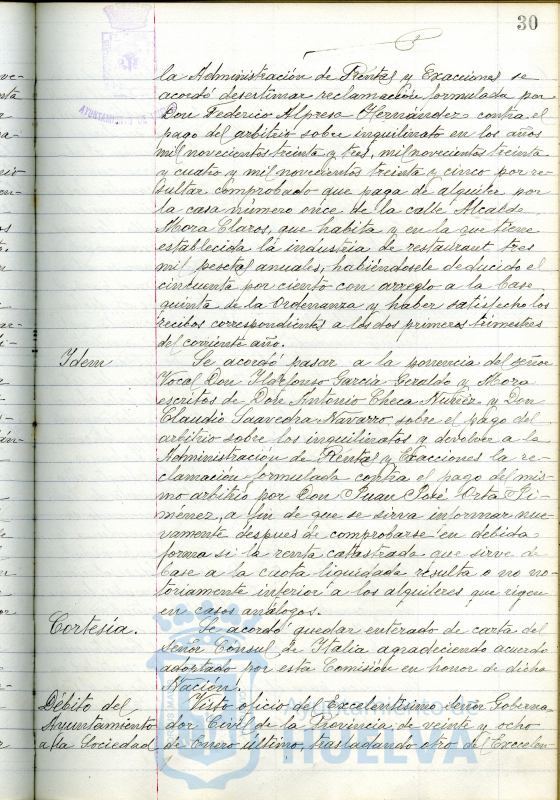 30
la Administración de Rentas y Exacciones se
acordó desestimar reclamación formulada por
Don Federico Alpresa Hernández contra el
pago del arbitrio sobre inquilinato en los años
mil novecientos treinta y tres, mil novecientos treinta
y cuatro y mil novecientos treinta y cinco por re-
sultar comprobado que paga de alquiler por
la casa número once de la calle Alcalde
Mora Claros, que habita y en la que tiene
establecida la industria de restaurant tres
mil pesetas anuales, habiéndosele deducido el
cincuenta por ciento con arreglo a la base
quinta de la Ordenanza y haber satisfecho los
recibos correspondientes a los dos primeros trimestres
del corriente año.
Idem
Se acordó pasar a la ponencia del señor
Vocal Don Ildefonso García Geraldo y Mora
escritos de Don Antonio Checa Nuñez y Don
Claudio Saavedra Navarro, sobre el pago del
arbitrio sobre los inquilinatos y devolver a la
Administración de Rentas y Exacciones la re-
clamación formulada contra el pago del mis-
mo arbitrio por Don Juan José Orta Ji-
ménez, a fin de que se sirva informar nue-
vamente despues de comprobarse en debida
forma si la renta catastrada que sirve de
base a la cuota liquidada resulta o no no-
toriamente inferior a los alquileres que rigen
en casos análogos.
Cortesía.
Se acordó quedar enterado de carta del
Señor Cónsul de Italia agradeciendo acuerdo
adoptado por esta Comisión en honor de dicha
Nación.
Débito del
Ayuntamiento
a la Sociedad
Visto oficio del Excelentísimo Señor Goberna-
dor Civil de la Provincia, de veinte y ocho
de Enero último, trasladando otro del Excelen-
HUELVA